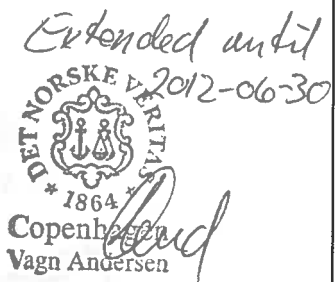 Extended until
2012-06-30
DET NORSKE VERITAS
* 1864 *
Copenhagen
Vagn Andersen